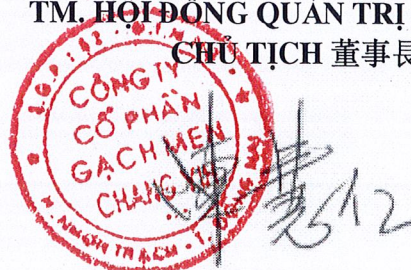 TM. HỘI ĐỒNG QUẢN TRỊ
CHỦ TỊCH 董事長
CÔNG TY
CỔ PHẦN
GẠCH MEN
CHANG YIH
H. NHƠN TRẠCH - T. ĐỒNG NAI
陳慧仁